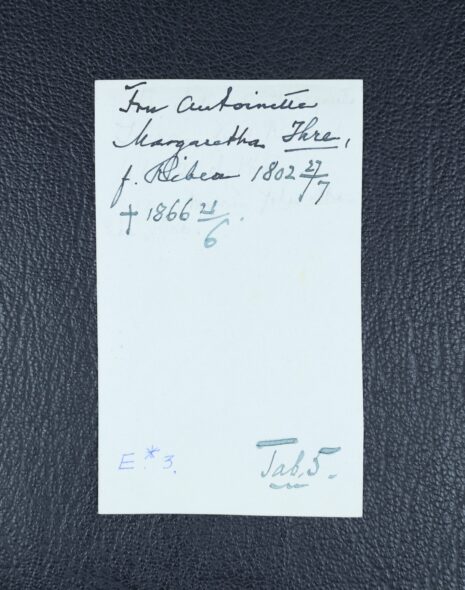 Fru Antoinette
Margaretha Ihre,
f. Ribea 1802 27/7
† 1866 21/6.
E.* 3.
Tab. 5.